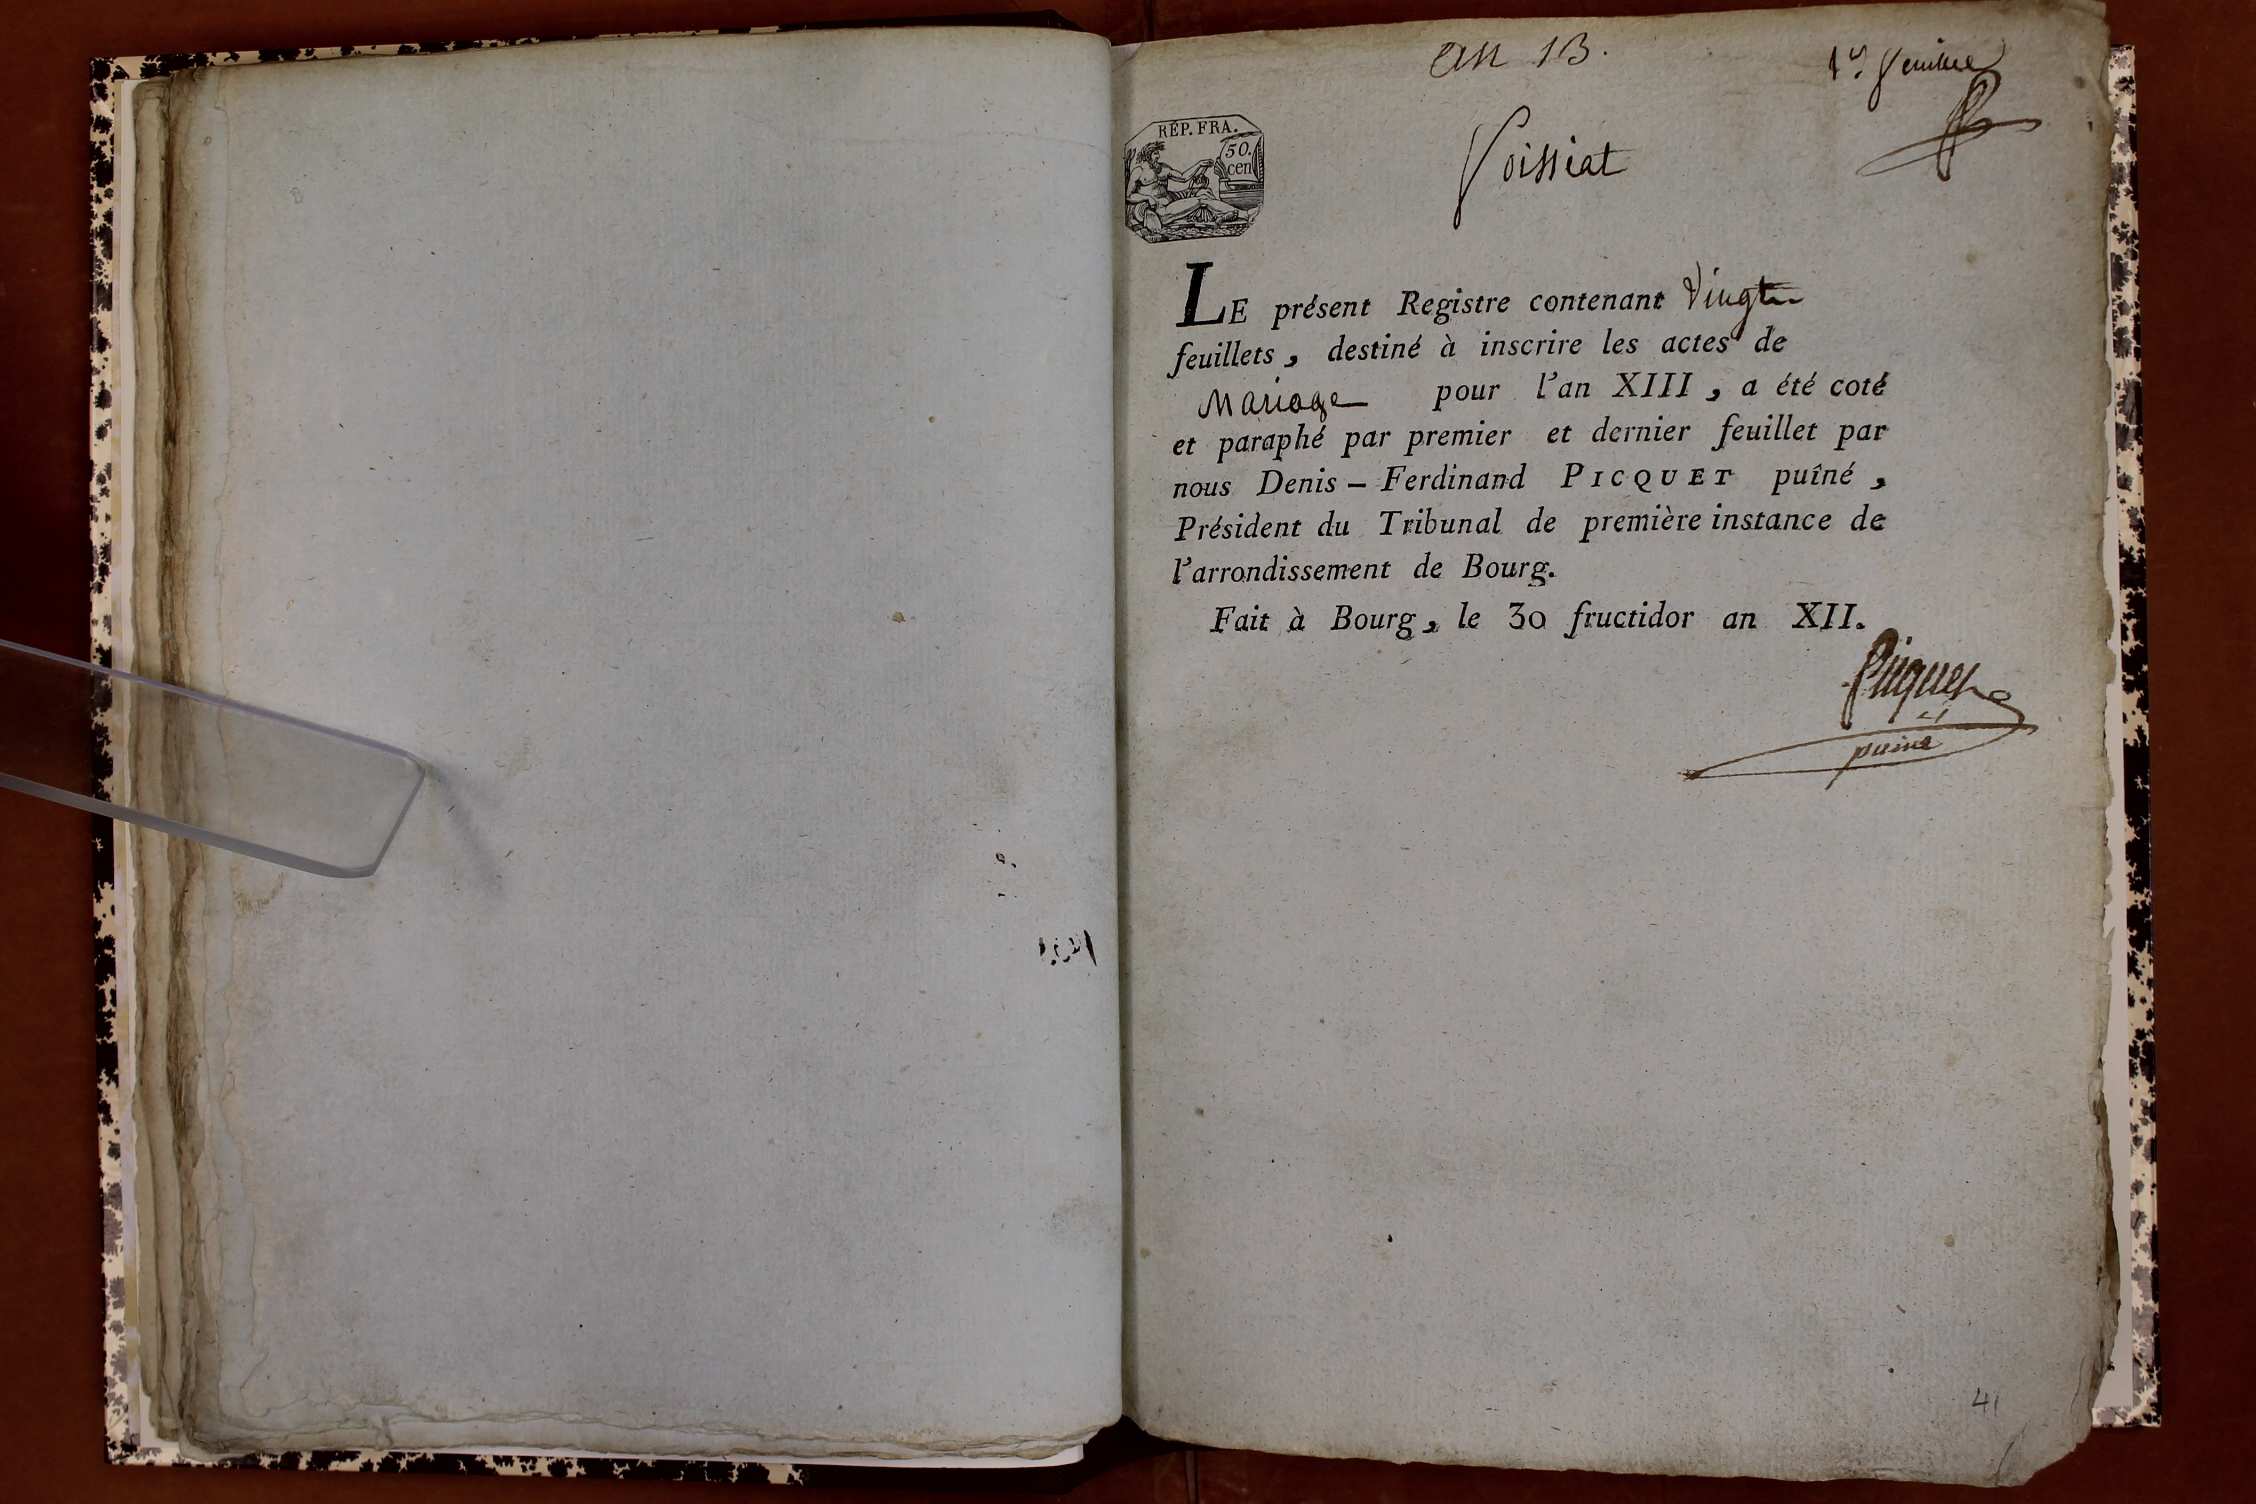 an 13.
1er feuillet
RÉP. FRA.
50.
cen
Foissiat
LE présent Registre contenant Vingt
feuillets, destiné à inscrire les actes de
Mariage pour l'an XIII, a été coté
et paraphé par premier et dernier feuillet par
nous Denis – Ferdinand PICQUET puîné,
Président du Tribunal de première instance de
l'arrondissement de Bourg.
Fait à Bourg, le 30 fructidor an XII.
Picquet
puiné
41